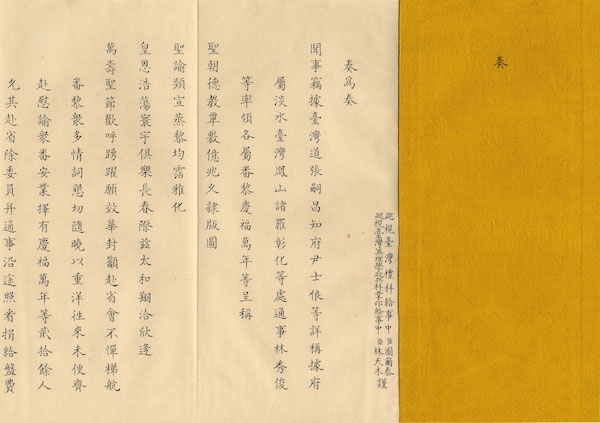 奏
巡視臺灣禮科給事中臣圖爾泰
巡視臺灣兼理學政兵科掌印給事中臣林天木謹
奏為奏
聞事竊據臺灣道張嗣昌知府尹士俍等詳稱據府
屬淡水臺灣鳳山諸羅彰化等處通事林秀俊
等率領各屬番黎慶福萬年等呈稱
聖朝德教覃敷億兆久隸版圖
聖諭頻宣蒸黎均霑雅化
皇恩浩蕩寰宇俱樂長春際茲太和翔洽欣逢
萬壽聖節歡呼踴躍願效華封籲赴省會不憚梯航
番黎衆多情詞懇切隨曉以重洋往來未便齊
赴慰諭衆番安業擇有慶福萬年等貳拾餘人
允其赴省除委員并通事沿途照看捐給盤費